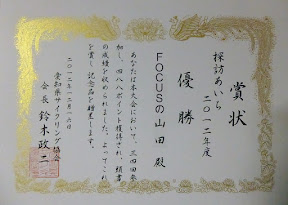 賞状
探訪あいち
二〇一二年度
優勝
FOCUSの山田殿
あなたは本大会において、三四四参
加し、四八八ポイント獲得され、頭書
の成績を収められました。よってこれ
を賞し、記念品を贈呈します。
二〇一二年十二月一六日
愛知県サイクリング協会
会長 鈴木政二